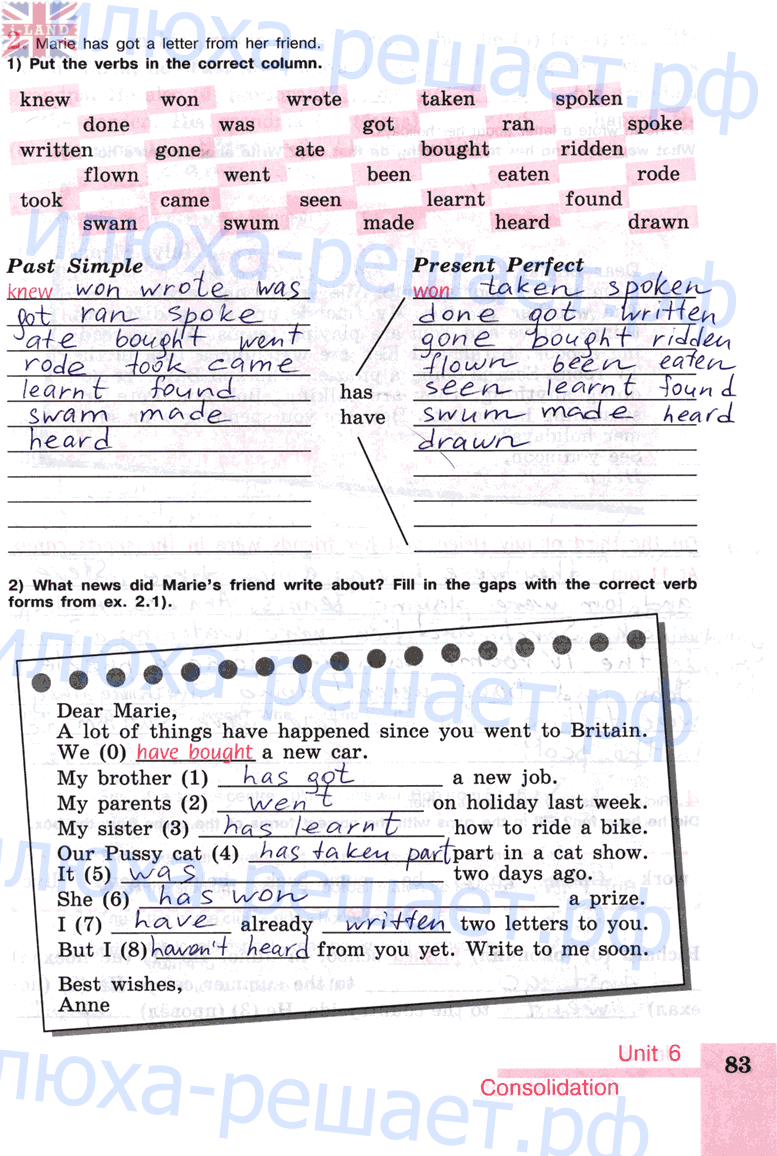 i-LAND
2. Marie has got a letter from her friend.
1) Put the verbs in the correct column.
knew won wrote taken spoken
done was got ran spoke
written gone ate bought ridden
flown went been eaten rode
took came seen learnt found
swam swum made heard drawn
Past Simple
knew won wrote was
got ran spoke
ate bought went
rode took came
learnt found
swam made
heard
has
have
Present Perfect
won taken spoken
done got written
gone bought ridden
flown been eaten
seen learnt found
swum made heard
drawn
2) What news did Marie's friend write about? Fill in the gaps with the correct verb
forms from ex. 2.1).
Dear Marie,
A lot of things have happened since you went to Britain.
We (0) have bought a new car.
My brother (1) has got a new job.
My parents (2) went on holiday last week.
My sister (3) has learnt how to ride a bike.
Our Pussy cat (4) has taken part part in a cat show.
It (5) was two days ago.
She (6) has won a prize.
I (7) have already written two letters to you.
But I (8) haven't heard from you yet. Write to me soon.
Best wishes,
Anne
Unit 6
Consolidation
83
илюха-решает.рф
илюха-решает.рф
илюха-решает.рф
илюха-решает.рф
илюха-решает.рф